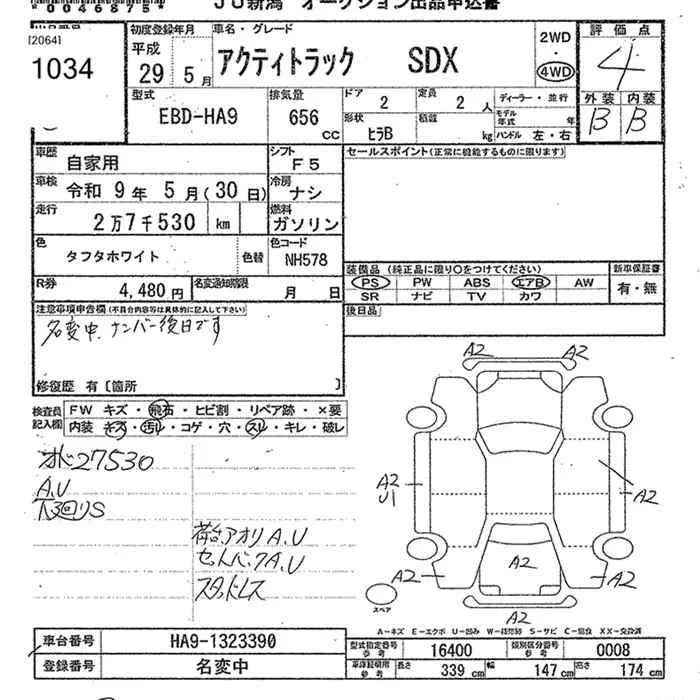 *0046875*
JU新潟 オークション出品申込書
[2064]
1034
初度登録年月
平成
29 5月
車名・グレード
アクティトラック SDX
2WD
4WD
評価点
4
型式
EBD-HA9
排気量
656 CC
ドア
2
定員
2人
ディーラー・並行
形状
ヒラB
積載
kg
モデル年式 年
ハンドル 左・右
外装 内装
B B
車歴
自家用
シフト
F5
セールスポイント(正常に機能するものに限ります)
車検
令和 9年 5月(30日)
冷房
ナシ
走行
2万7千530 km
燃料
ガソリン
色
タフタホワイト
色替
色コード
NH578
装備品 (純正品に限り○をつけてください)
新車保証書
PS PW ABS エアB AW
SR ナビ TV カワ
有・無
R券
4,480円
名変通知期限
月 日
後日品
注意事項申告欄(不具合内容等は具体的に記入して下さい)
名変中、ナンバー後日です
修復歴 有〔箇所 〕
検査員記入欄
FW キズ・飛石・ヒビ割・リペア跡・×要
内装 キズ・汚レ・コゲ・穴・スレ・キレ・破レ
オド27530
A.U
下回りS
荷台アオリA.U
セットバックA.U
スタッドレス
A2 A2
A2
U1
A2
A2
A2 A2
A2
スペア
A-キズ E-エクボ U-凹み W-補修跡 S-サビ C-腐食 XX-交換済
車台番号
HA9-1323390
型式指定番号
参考
16400
類別区分番号
参考
0008
登録番号
名変中
車庫証明用
参考
長さ 339 cm
幅 147 cm
高さ 174 cm